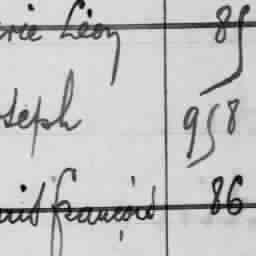 erie Léon 85
oseph 958
François 86